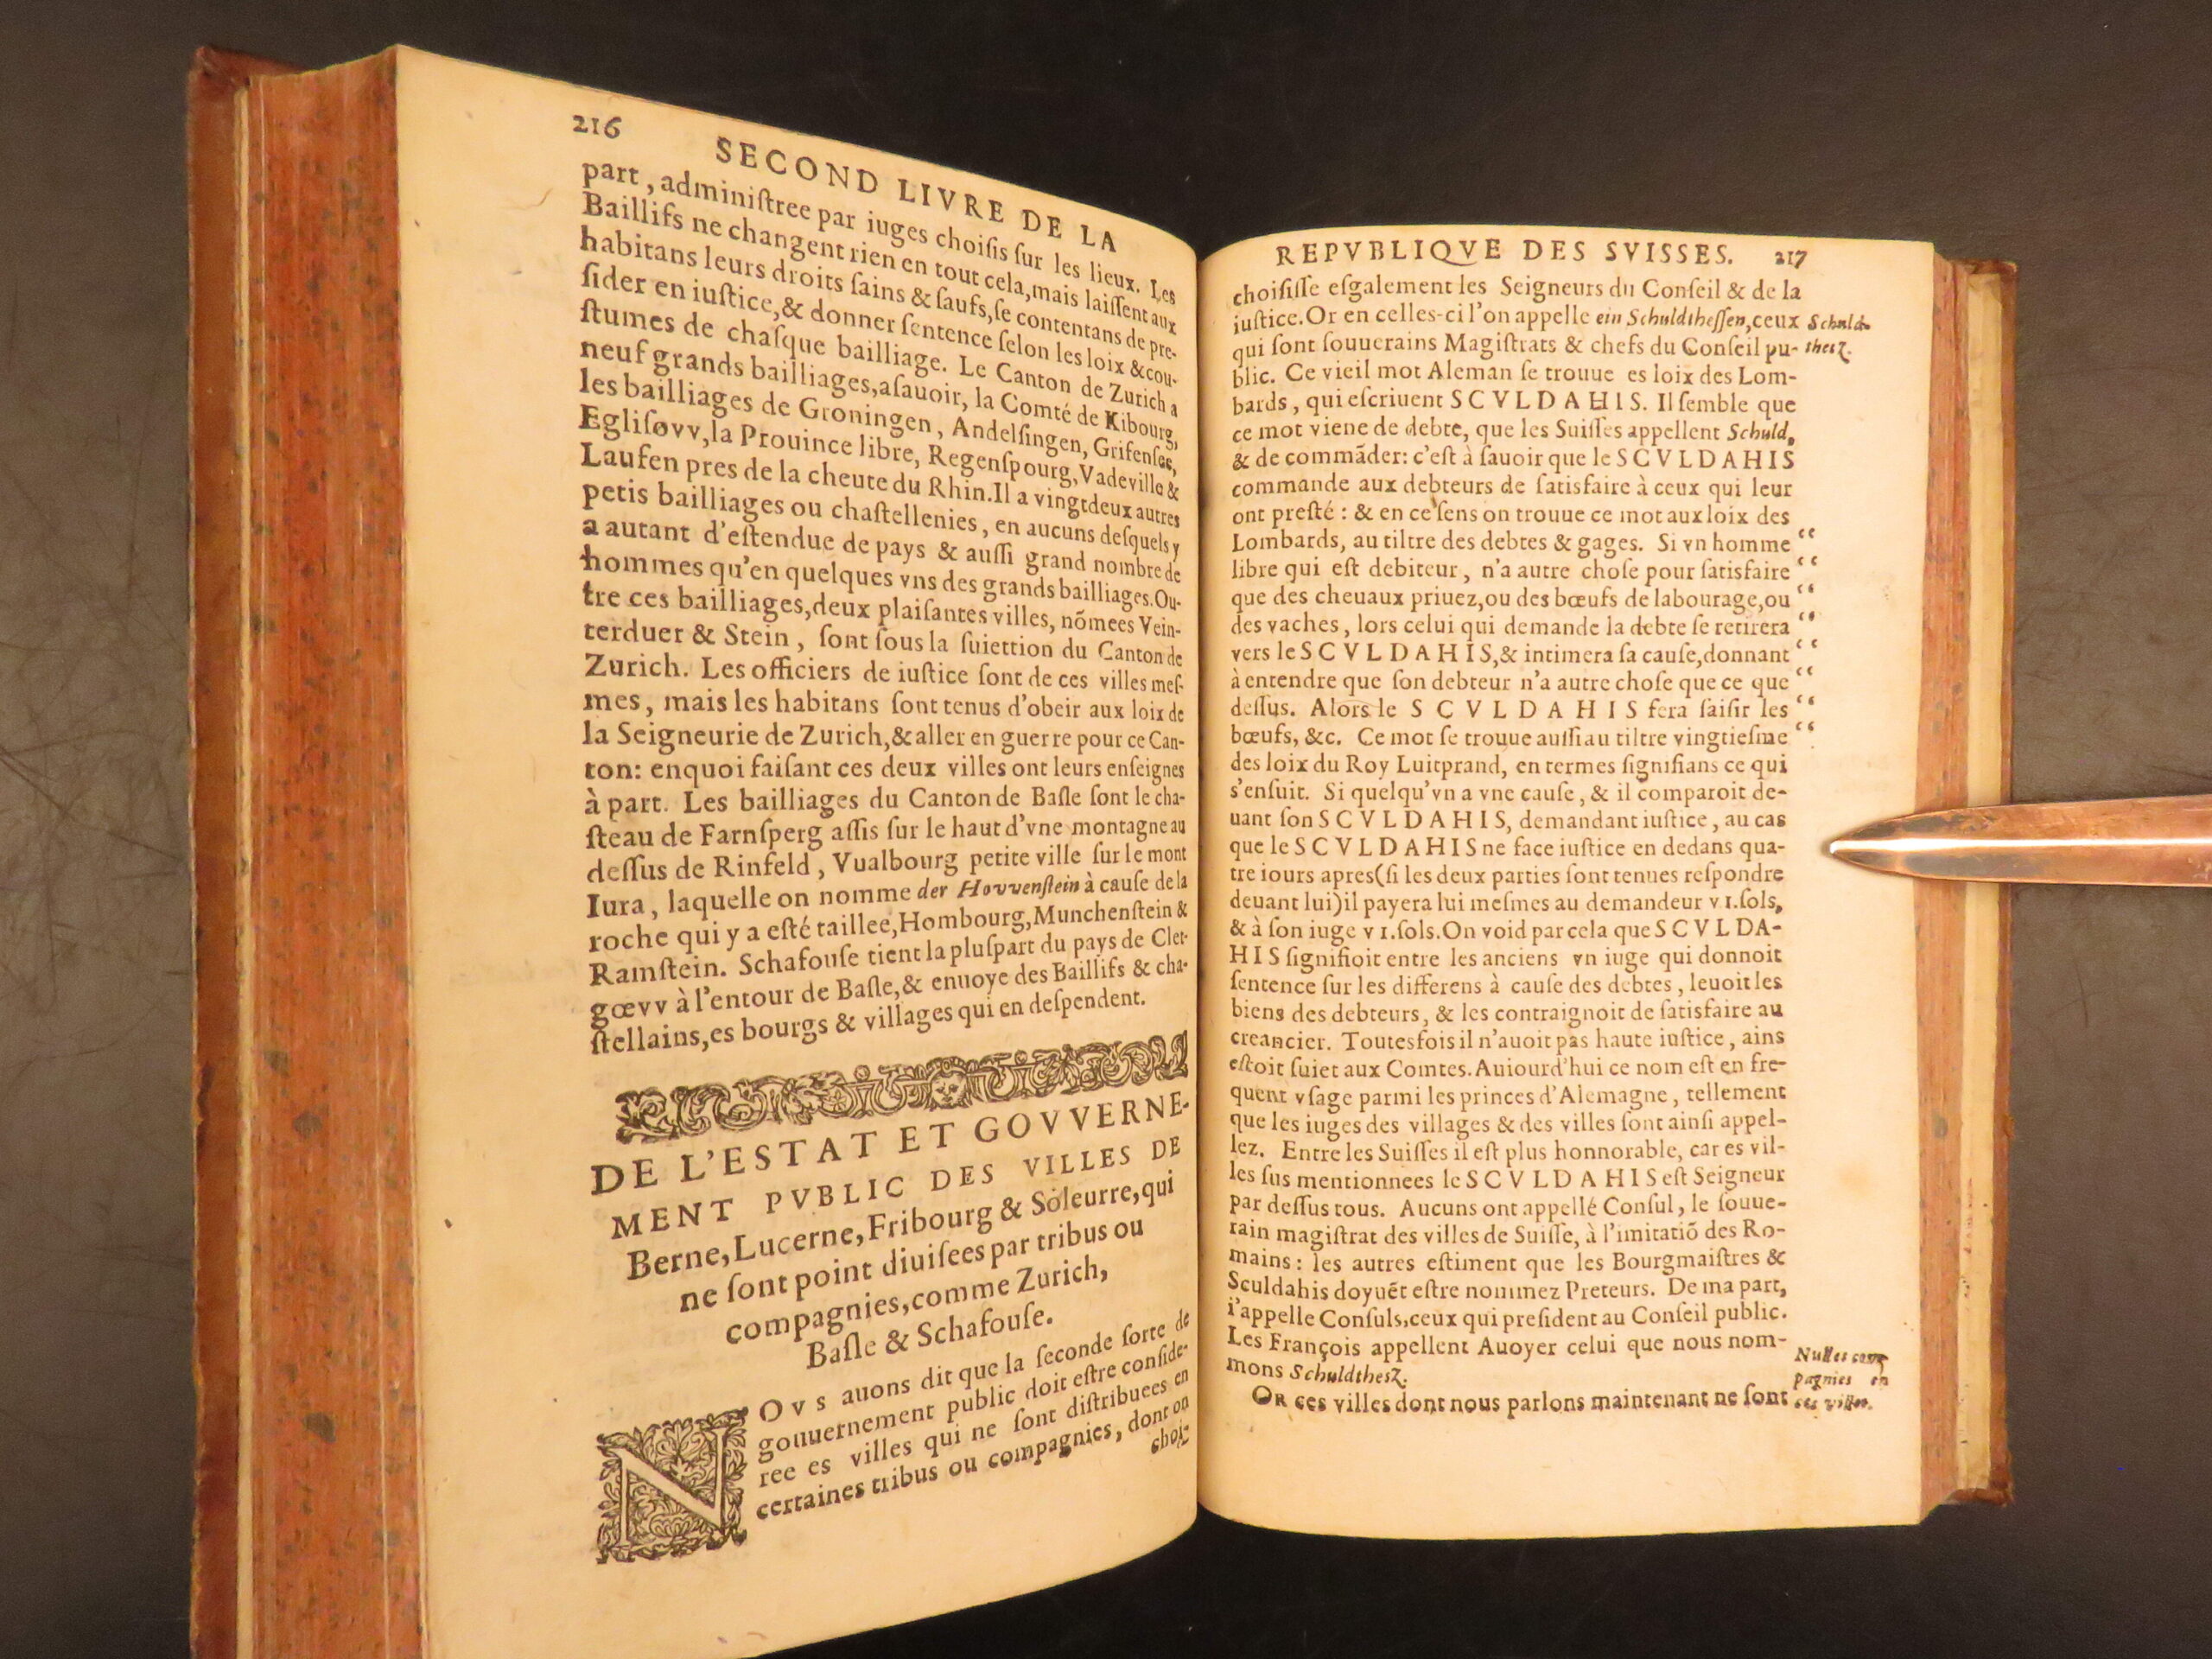 216
SECOND LIVRE DE LA
part, adminiſtree par iuges choiſis ſur les lieux. Les
Baillifs ne changent rien en tout cela, mais laiſſent aux
habitans leurs droits ſains & ſaufs, ſe contentans de pre-
ſider en iuſtice, & donner ſentence ſelon les loix & cou-
ſtumes de chaſque bailliage. Le Canton de Zurich a
neuf grands bailliages, aſauoir, la Comté de Kibourg,
les bailliages de Groningen, Andelſingen, Grifenſee,
Egliſovv, la Prouince libre, Regenſpourg, Vadeville &
Laufen pres de la cheute du Rhin. Il a vingtdeux autres
petis bailliages ou chaſtellenies, en aucuns deſquels y
a autant d'eſtendue de pays & auſſi grand nombre de
hommes qu'en quelques vns des grands bailliages. Ou-
tre ces bailliages, deux plaiſantes villes, nõmees Vein-
terduer & Stein, ſont ſous la ſuiettion du Canton de
Zurich. Les officiers de iuſtice ſont de ces villes meſ-
mes, mais les habitans ſont tenus d'obeir aux loix de
la Seigneurie de Zurich, & aller en guerre pour ce Can-
ton: enquoi faiſant ces deux villes ont leurs enſeignes
à part. Les bailliages du Canton de Baſle ſont le cha-
ſteau de Farnſperg aſſis ſur le haut d'vne montagne au
deſſus de Rinfeld, Vualbourg petite ville ſur le mont
Iura, laquelle on nomme der Hovvenſtein à cauſe de la
roche qui y a eſté taillee, Hombourg, Munchenſtein &
Ramſtein. Schafouſe tient la pluſpart du pays de Clet-
gœvv à l'entour de Baſle, & enuoye des Baillifs & cha-
ſtellains, es bourgs & villages qui en deſpendent.
DE L'ESTAT ET GOVVERNE-
MENT PVBLIC DES VILLES DE
Berne, Lucerne, Fribourg & Soleurre, qui
ne ſont point diuiſees par tribus ou
compagnies, comme Zurich,
Baſle & Schafouſe.
NOVS auons dit que la ſeconde ſorte de
gouuernement public doit eſtre conſide-
ree es villes qui ne ſont diſtribuees en
certaines tribus ou compagnies, dont on
choi-
REPVBLIQVE DES SVISSES. 217
choiſiſſe eſgalement les Seigneurs du Conſeil & de la
iuſtice. Or en celles-ci l'on appelle ein Schuldtheſſen, ceux
Schuld-
qui ſont ſouuerains Magiſtrats & chefs du Conſeil pu-
thesz.
blic. Ce vieil mot Aleman ſe trouue es loix des Lom-
bards, qui eſcriuent SCVLDAHIS. Il ſemble que
ce mot viene de debte, que les Suiſſes appellent Schuld,
& de commãder: c'eſt à ſauoir que le SCVLDAHIS
commande aux debteurs de ſatisfaire à ceux qui leur
ont preſté: & en ce ſens on trouue ce mot aux loix des
Lombards, au tiltre des debtes & gages. Si vn homme “
libre qui eſt debiteur, n'a autre choſe pour ſatisfaire “
que des cheuaux priuez, ou des bœufs de labourage, ou “
des vaches, lors celui qui demande la debte ſe retirera “
vers le SCVLDAHIS, & intimera ſa cauſe, donnant “
à entendre que ſon debteur n'a autre choſe que ce que “
deſſus. Alors le SCVLDAHIS fera ſaiſir les “
bœufs, &c. Ce mot ſe trouue auſſi au tiltre vingtieſme “
des loix du Roy Luitprand, en termes ſignifians ce qui
s'enſuit. Si quelqu'vn a vne cauſe, & il comparoit de-
uant ſon SCVLDAHIS, demandant iuſtice, au cas
que le SCVLDAHIS ne face iuſtice en dedans qua-
tre iours apres (ſi les deux parties ſont tenues reſpondre
deuant lui) il payera lui meſmes au demandeur VI. ſols,
& à ſon iuge VI. ſols. On void par cela que SCVLDA-
HIS ſignifioit entre les anciens vn iuge qui donnoit
ſentence ſur les differens à cauſe des debtes, leuoit les
biens des debteurs, & les contraignoit de ſatisfaire au
creancier. Toutesfois il n'auoit pas haute iuſtice, ains
eſtoit ſuiet aux Comtes. Auiourd'hui ce nom eſt en fre-
quent vſage parmi les princes d'Alemagne, tellement
que les iuges des villages & des villes ſont ainſi appel-
lez. Entre les Suiſſes il eſt plus honnorable, car es vil-
les ſus mentionnees le SCVLDAHIS eſt Seigneur
par deſſus tous. Aucuns ont appellé Conſul, le ſouue-
rain magiſtrat des villes de Suiſſe, à l'imitatiõ des Ro-
mains: les autres eſtiment que les Bourgmaiſtres &
Sculdahis doyuẽt eſtre nommez Preteurs. De ma part,
i'appelle Conſuls, ceux qui preſident au Conſeil public.
Les François appellent Auoyer celui que nous nom-
mons Schuldthesz.
Or ces villes dont nous parlons maintenant ne ſont
Nulles com-
pagnies en
ces villes.